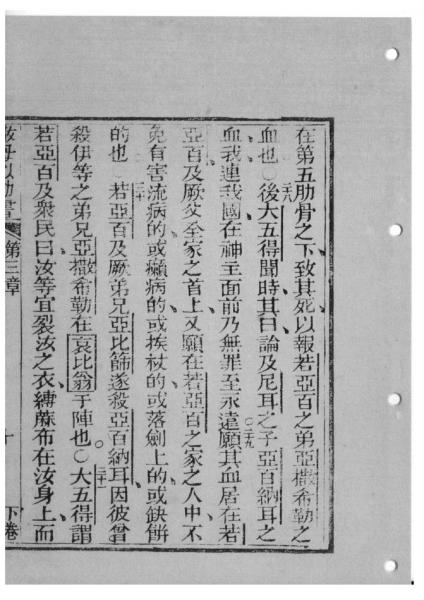 在第五肋骨之下致其死以報若亞百之弟亞撒希勒之
血也○二八後大五得聞時其曰論及尼耳之子亞百納耳之
血我連我國在神主面前乃無罪至永遠○二九願其血居在若
亞百及厥父全家之首上又願在若亞百之家之人中不
免有害流病的或癩病的或挨杖的或落劍上的或缺餅
的也○三十若亞百及厥弟兄亞比篩遂殺亞百納耳因彼曾
殺伊等之弟兄亞撒希勒在哀比翁于陣也○三十一大五得謂
若亞百及衆民曰汝等宜裂汝之衣縛蔴布在汝身上而
第三章 十 下卷